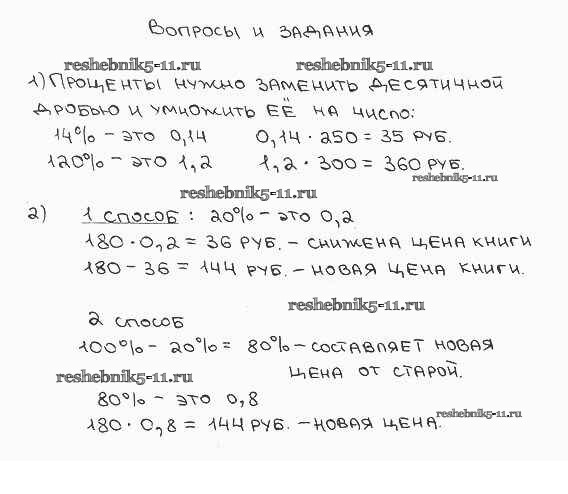 Вопросы и задания
reshebnik5-11.ru reshebnik5-11.ru
1) Проценты нужно заменить десятичной
дробью и умножить её на число:
14% – это 0,14 0,14 · 250 = 35 руб.
120% – это 1,2 1,2 · 300 = 360 руб.
reshebnik5-11.ru
reshebnik5-11.ru
2) 1 способ: 20% – это 0,2
180 · 0,2 = 36 руб. – снижена цена книги
180 – 36 = 144 руб. – новая цена книги.
reshebnik5-11.ru
2 способ
100% – 20% = 80% – составляет новая
цена от старой.
reshebnik5-11.ru
80% – это 0,8
reshebnik5-11.ru
180 · 0,8 = 144 руб. – новая цена.